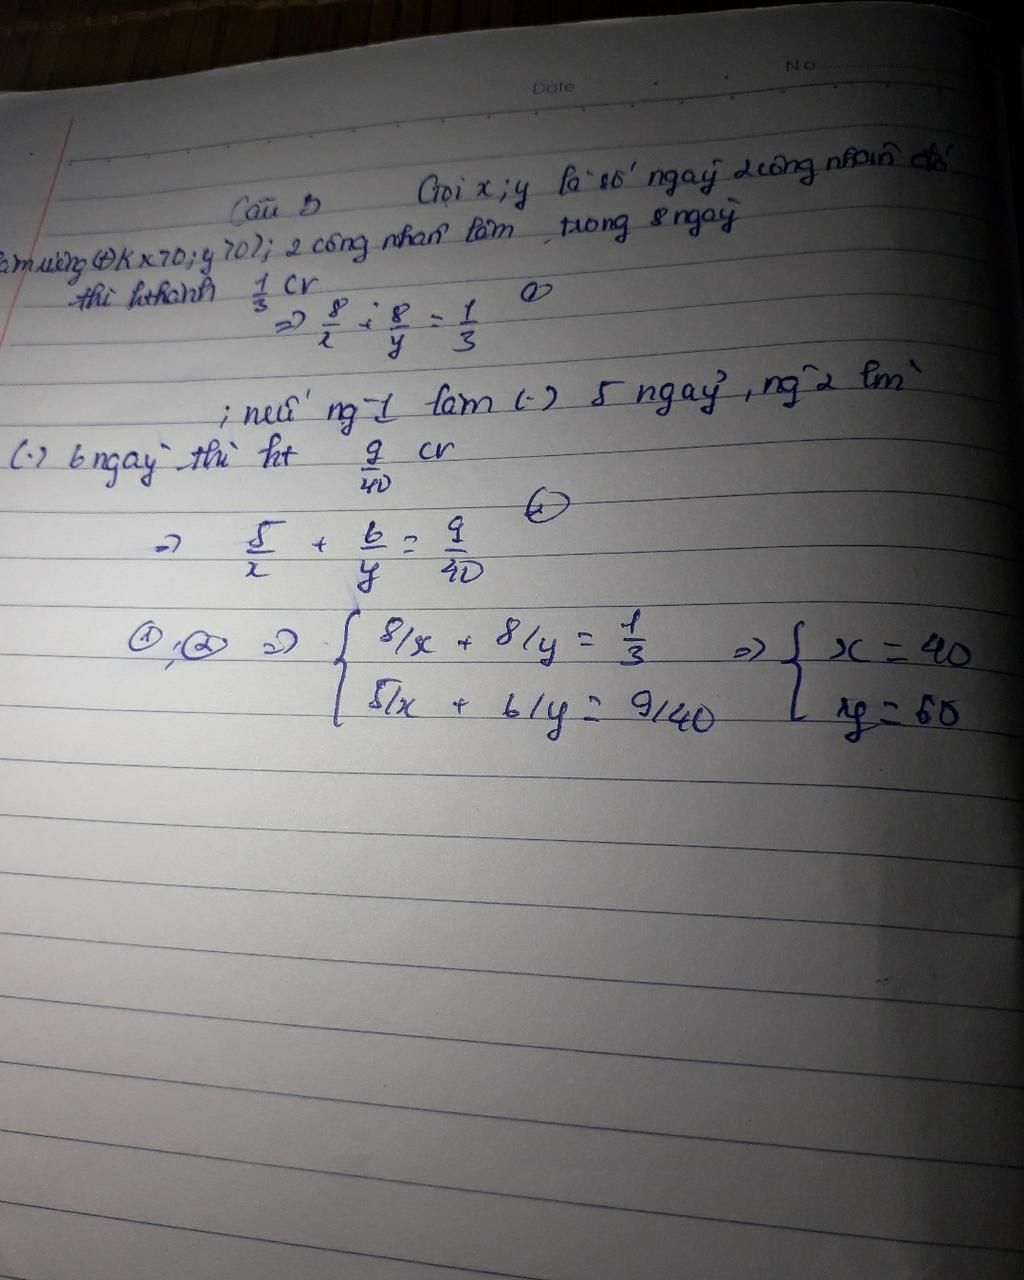 Date No
Câu 3 Gọi x; y là số ngày 2 công nhân đó
làm riêng (ĐK x>0; y>0); 2 công nhân làm trong 8 ngày
thì hthành 1/3 cv
=> 8/x + 8/y = 1/3 ①
; nếu ng-1 làm (.) 5 ngày, ng-2 lm
(.) 6 ngày thì ht 9/40 cv
=> 5/x + 6/y = 9/40 ②
①; ② => { 8/x + 8/y = 1/3 => { x = 40
5/x + 6/y = 9/40 y = 60